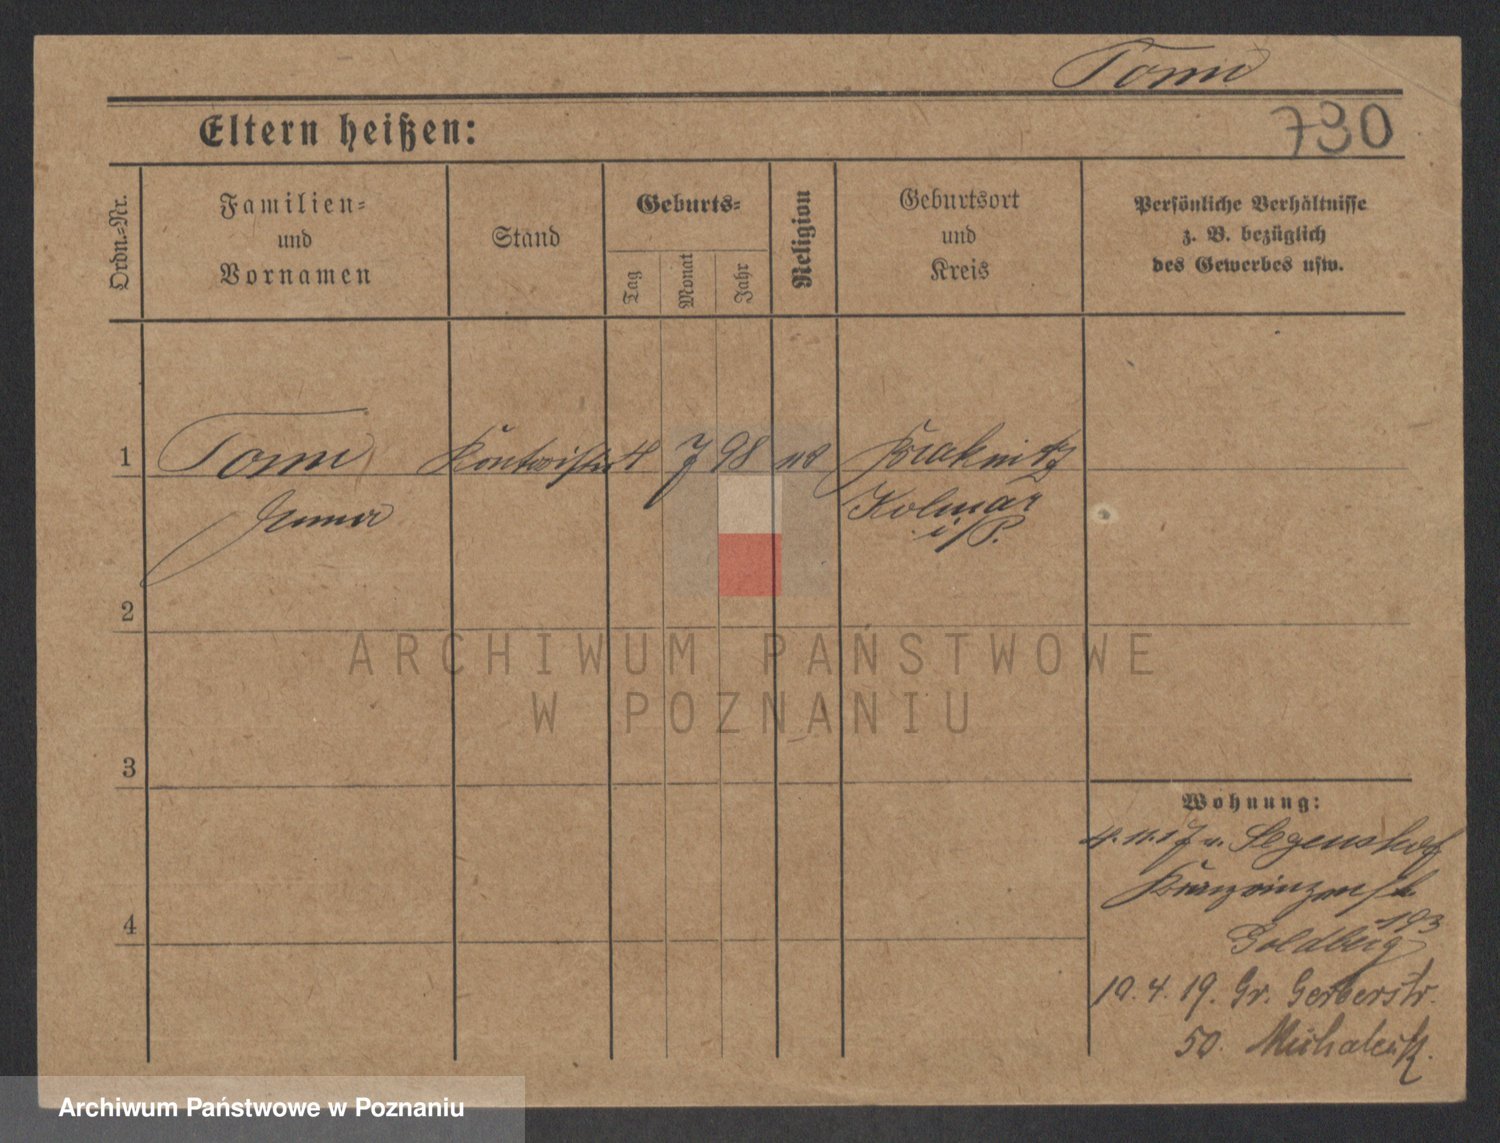 Tomi
730
Eltern heißen:
Ordn.-Nr.
Familien-
und
Vornamen
Stand
Geburts-
Tag
Monat
Jahr
Religion
Geburtsort
und
Kreis
Persönliche Verhältnisse
z. B. bezüglich
des Gewerbes usw.
1 Tomi 4 7 98
Kolmar
i/P.
2
3
4
Wohnung:
4.11.17 v.
193
Goldberg
10.4.19. Gr. Gerberstr.
50.
ARCHIWUM PAŃSTWOWE
W POZNANIU
Archiwum Państwowe w Poznaniu